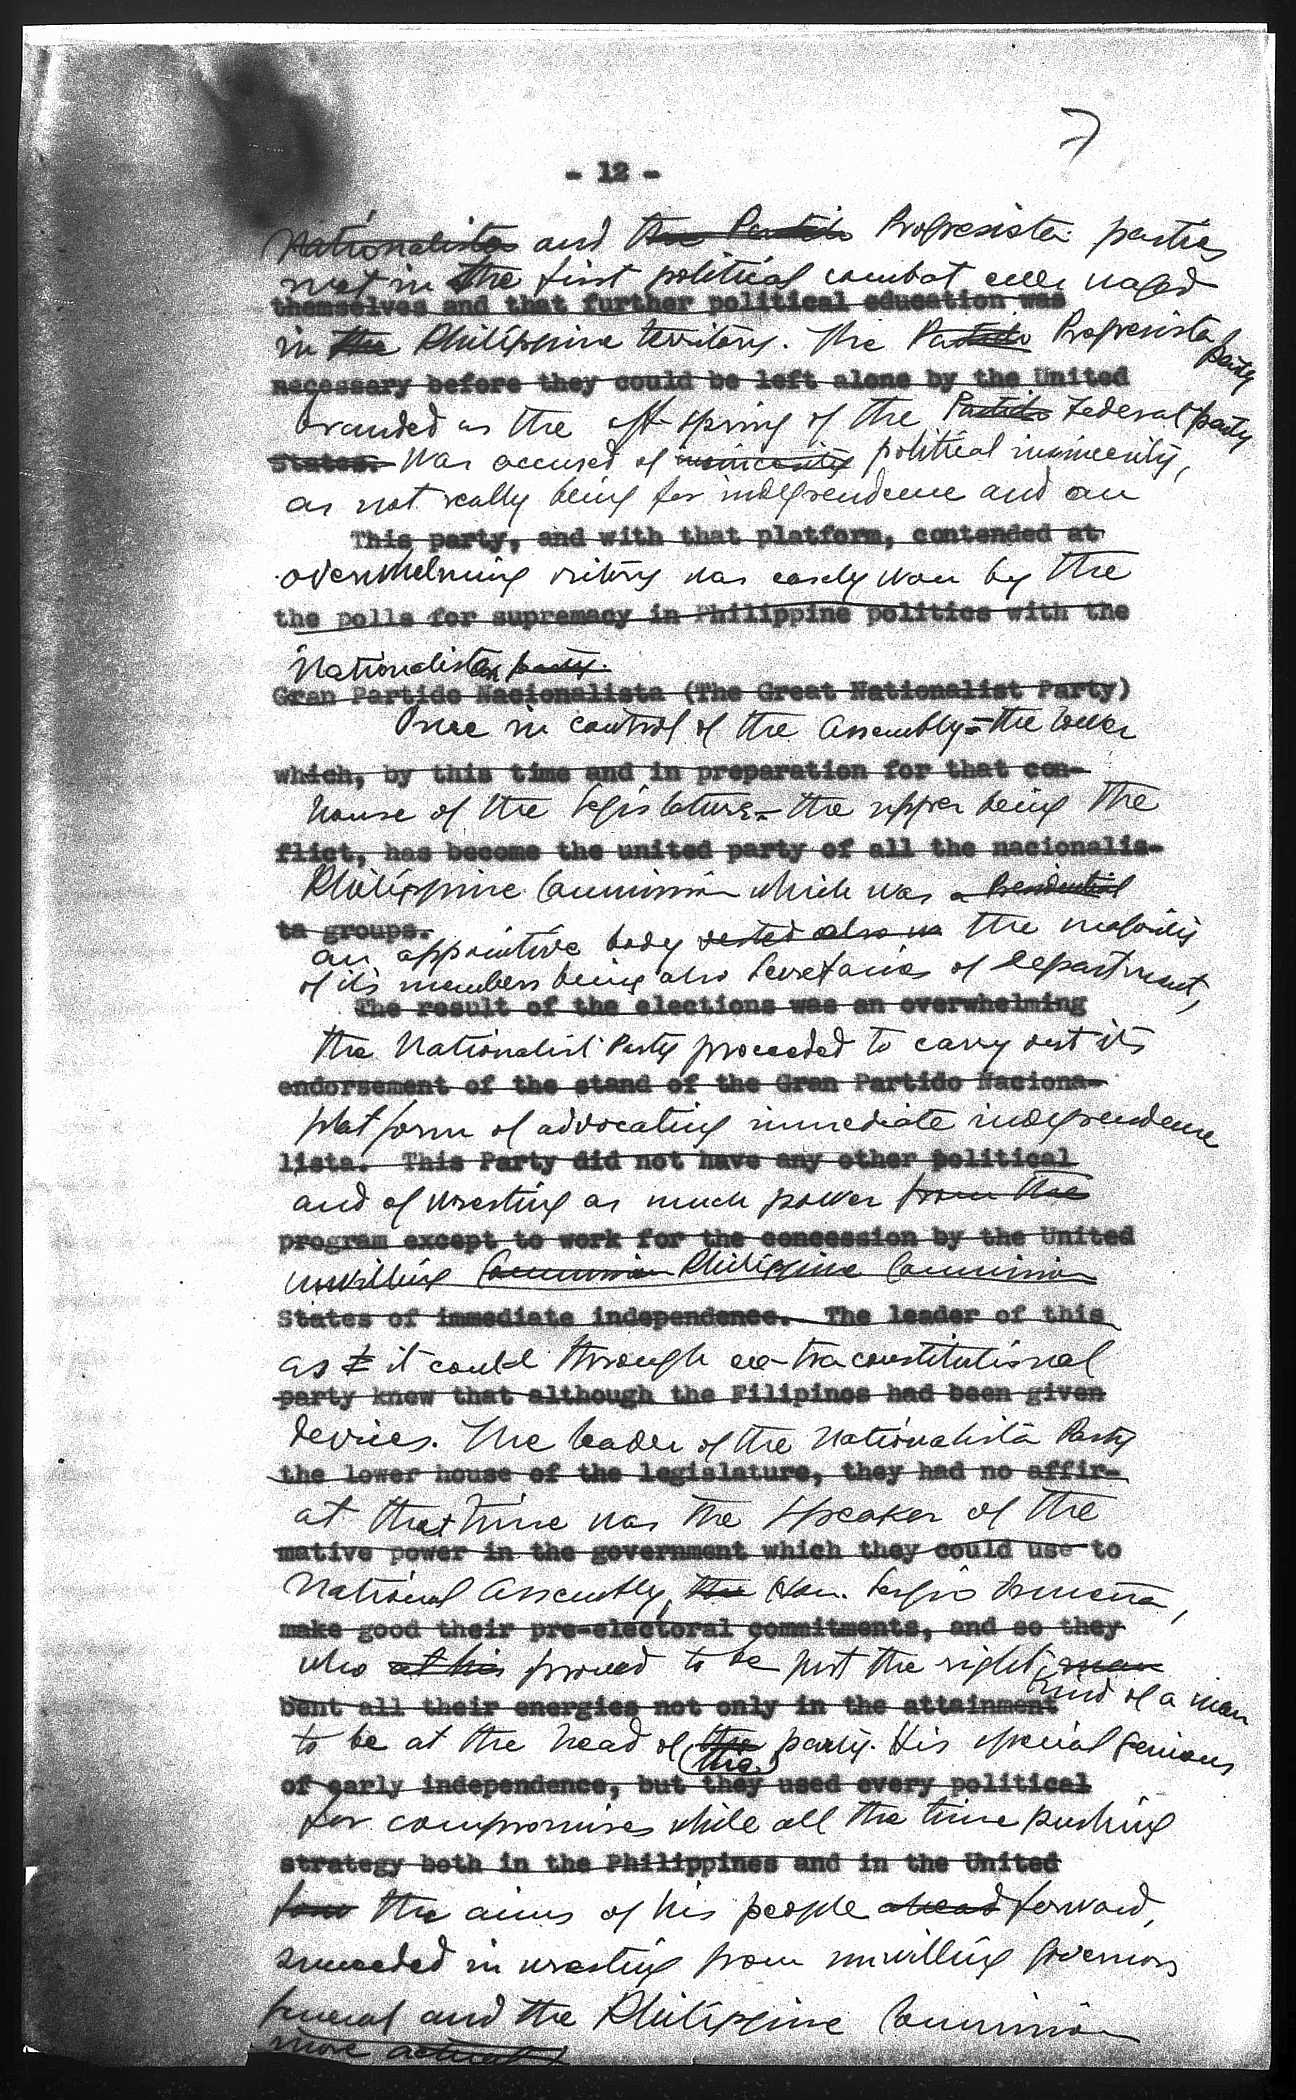 7
- 12 -
Nationalista and the Partido Progresista parties
met in the first political combat ever waged
themselves and that further political education was
in the Philippine territory. The Partido Progresista party
necessary before they could be left alone by the United
branded as the off-spring of the Partido Federal party
States. was accused of insincerity political insincerity,
as not really being for independence and an
This party, and with that platform, contended at
overwhelming victory was easily won by the
the polls for supremacy in Philippine politics with the
Nationalista party.
Gran Partido Nacionalista (The Great Nationalist Party)
Once in control of the Assembly - the lower
which, by this time and in preparation for that con-
house of the legislature - the upper being the
flict, has become the united party of all the nacionalis-
Philippine Commission which was a Presidential
ta groups.
an appointive body vested also in the majority
of its members being also Secretaries of Department,
The result of the elections was an overwhelming
the Nationalist Party proceeded to carry out its
endorsement of the stand of the Gran Partido Naciona-
platform of advocating immediate independence
lista. This Party did not have any other political
and of wresting as much power from the
program except to work for the concession by the United
unwilling Commission Philippine Commission
States of immediate independence. The leader of this
as it could through extraconstitutional
party knew that although the Filipinos had been given
devices. The leader of the Nationalista Party
the lower house of the legislature, they had no affir-
at that time was the Speaker of the
mative power in the government which they could use to
National Assembly, the Hon. Sergio Osmeña,
make good their pre-electoral commitments, and so they
who at his proved to be just the right man
kind of a man
bent all their energies not only in the attainment
to be at the head of the party. His special genious
the
of early independence, but they used every political
for compromises while all the time pushing
strategy both in the Philippines and in the United
the aims of his people ahead forward,
succeeded in wresting from unwilling governors
general and the Philippine Commission
more actual